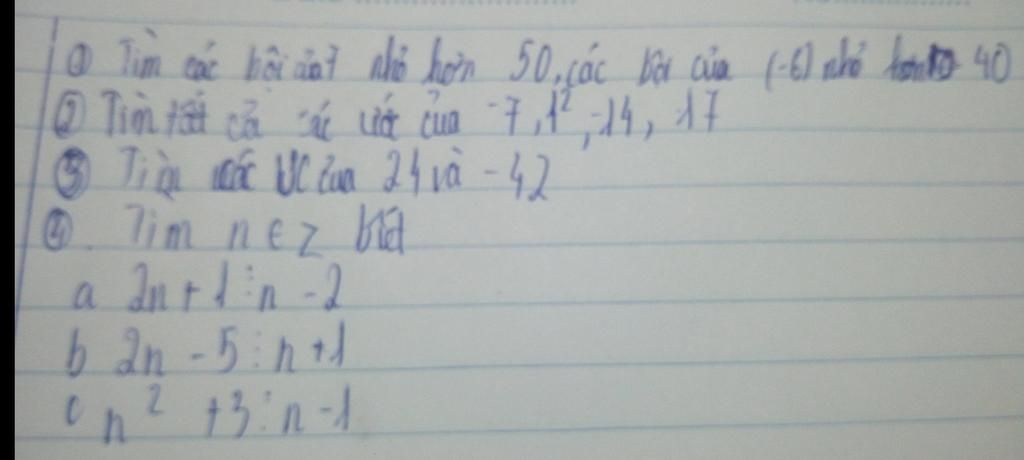 ① Tìm các bội của 7 nhỏ hơn 50, các bội của (-6) nhỏ hơn 40
② Tìm tất cả các ước của -7, 1², -14, 17
③ Tìm các ƯC của 24 và -42
④. Tìm n ∈ Z biết
a 2n + 1 ⋮ n - 2
b 2n - 5 ⋮ n + 1
c n² + 3 ⋮ n - 1